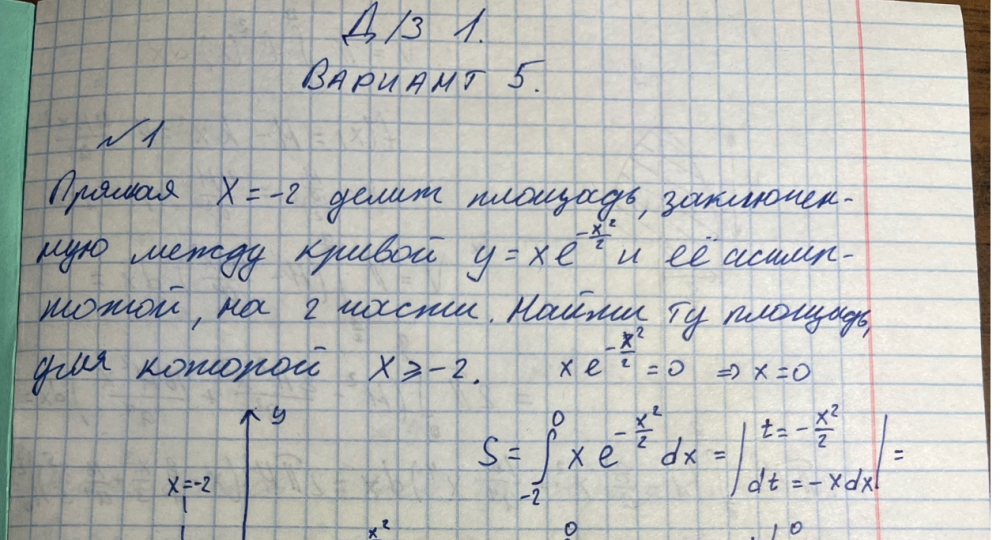 Д/З 1.
ВАРИАНТ 5.
№1
Прямая x = -2 делит площадь, заключен-
ную между кривой y = xe^{-x²/2} и её асимп-
тотой, на 2 части. Найти ту площадь,
для которой x ≥ -2. xe^{-x²/2} = 0 ⇒ x = 0
y
S = ∫_{-2}^{0} x e^{-x²/2} dx = | t = -x²/2
dt = -xdx | =
x=-2